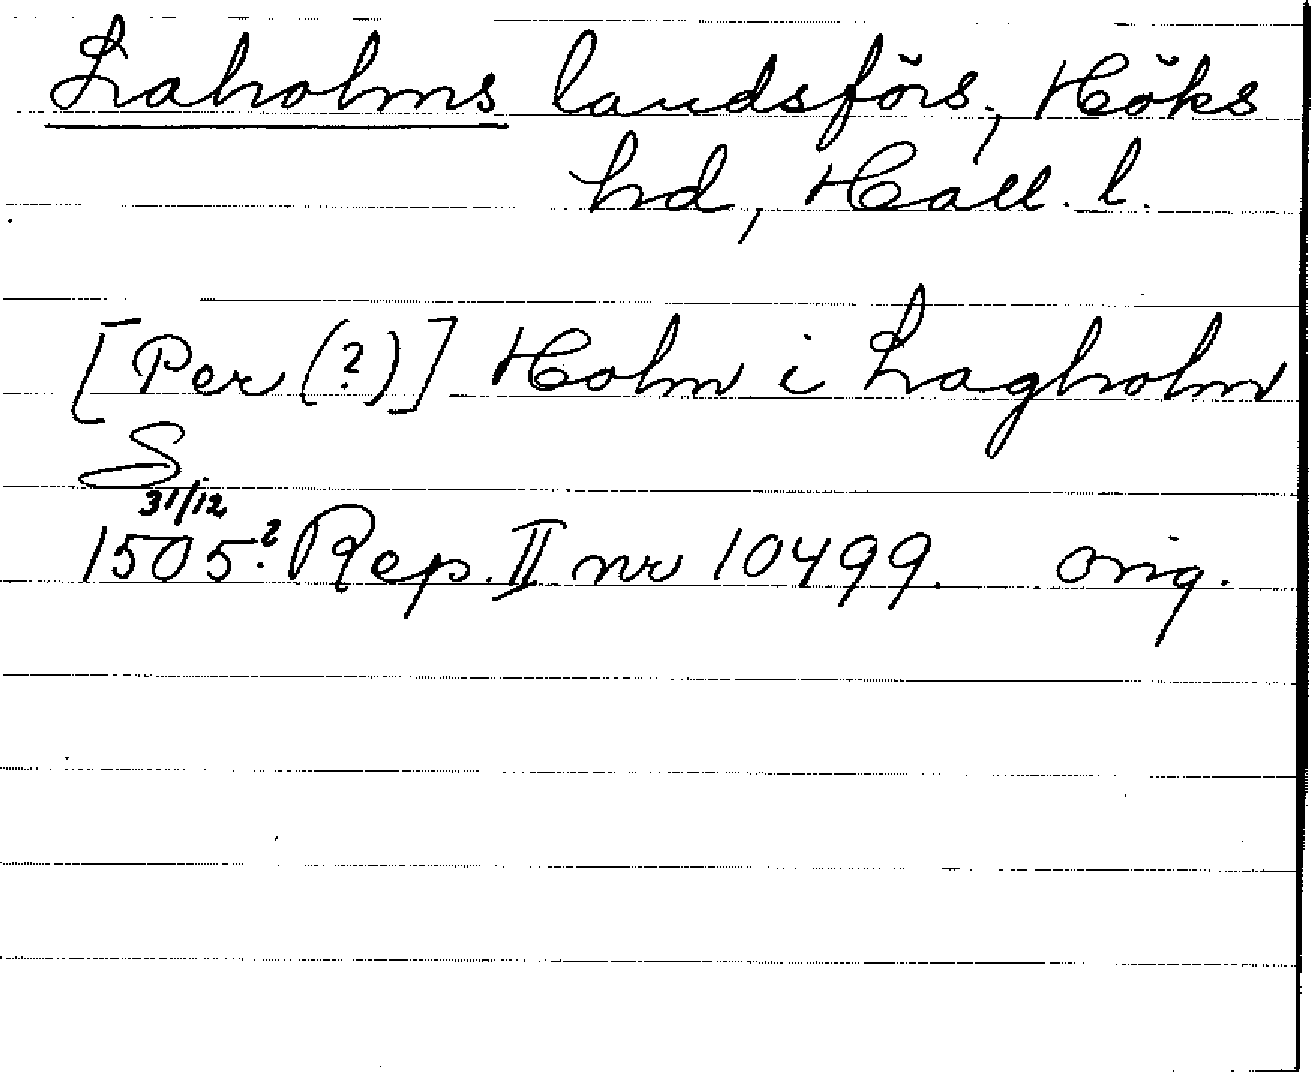 Laholms landsförs., Höks
hd, Hall. l.
[Per (?)] Holm i Lagholm
S
31/12
1505? Rep. II nr 10499. orig.